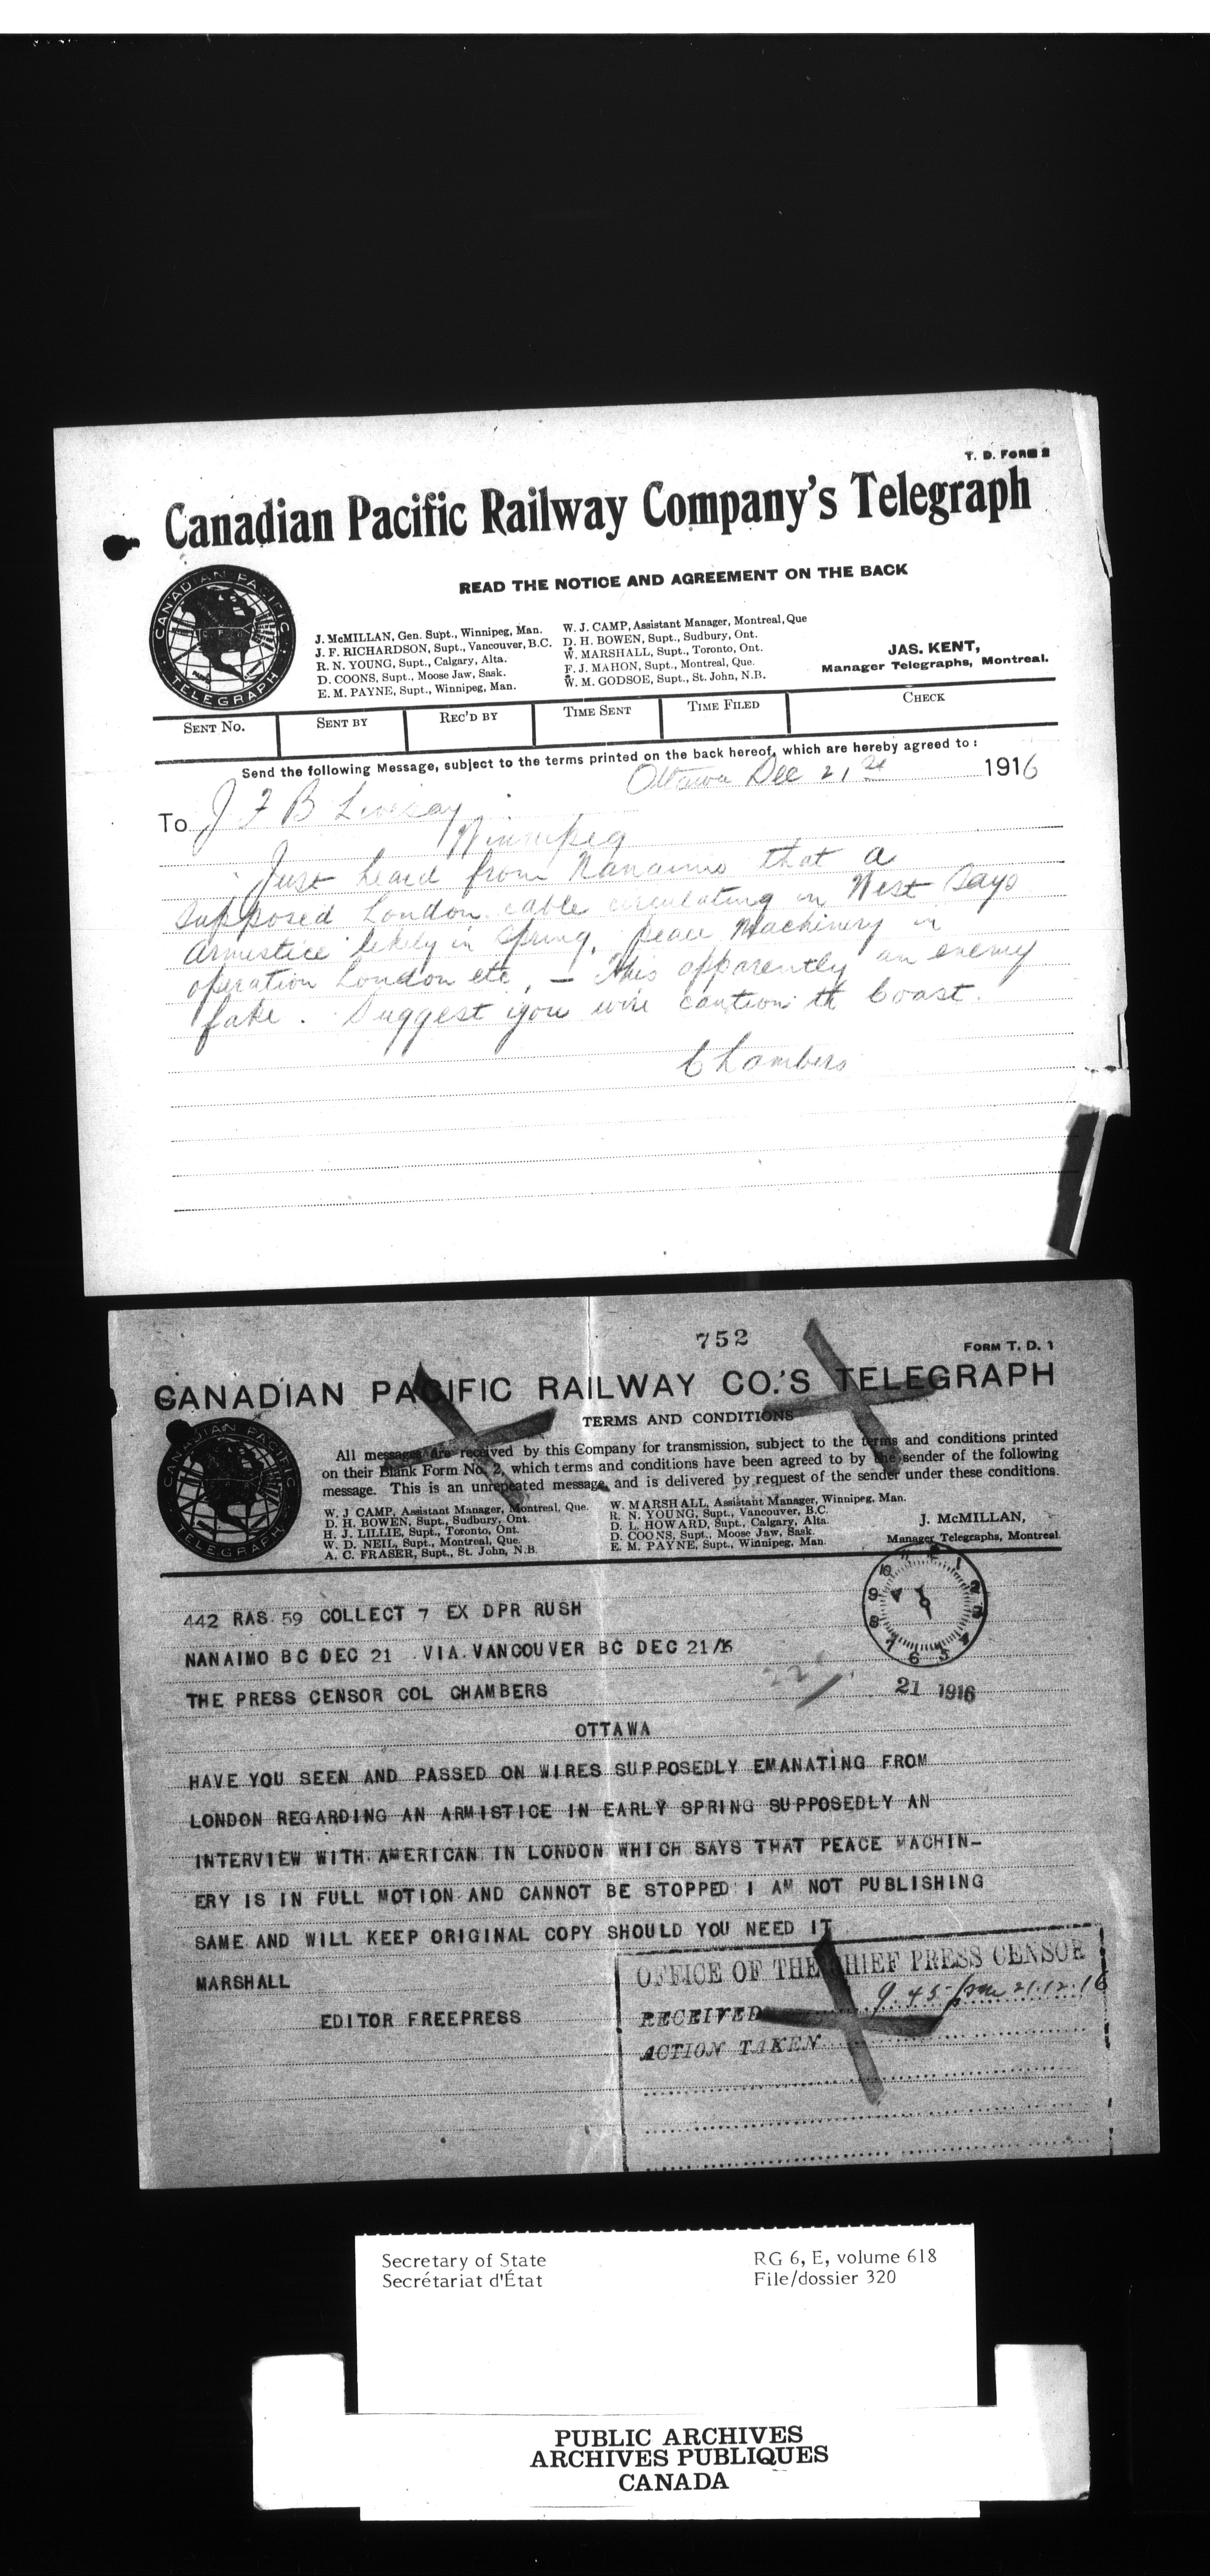 T. D. FORM 2
Canadian Pacific Railway Company's Telegraph
READ THE NOTICE AND AGREEMENT ON THE BACK
CANADIAN PACIFIC
TELEGRAPH
J. McMILLAN, Gen. Supt., Winnipeg, Man.
J. F. RICHARDSON, Supt., Vancouver, B.C.
R. N. YOUNG, Supt., Calgary, Alta.
D. COONS, Supt., Moose Jaw, Sask.
E. M. PAYNE, Supt., Winnipeg, Man.
W. J. CAMP, Assistant Manager, Montreal, Que
D. H. BOWEN, Supt., Sudbury, Ont.
W. MARSHALL, Supt., Toronto, Ont.
F. J. MAHON, Supt., Montreal, Que.
W. M. GODSOE, Supt., St. John, N.B.
JAS. KENT,
Manager Telegraphs, Montreal.
SENT No. SENT BY REC'D BY TIME SENT TIME FILED CHECK
Send the following Message, subject to the terms printed on the back hereof, which are hereby agreed to :
Ottawa Dec 21st 1916
To J F B Livesay
Winnipeg
Just heard from Nanaimo that a
supposed London cable circulating in West says
armistice likely in Spring, peace Machinery in
operation London etc, — This apparently an enemy
fake. Suggest you wire caution to Coast.
Chambers
752
FORM T. D. 1
CANADIAN PACIFIC RAILWAY CO.'S TELEGRAPH
TERMS AND CONDITIONS
CANADIAN PACIFIC
TELEGRAPH
All messages are received by this Company for transmission, subject to the terms and conditions printed
on their Blank Form No. 2, which terms and conditions have been agreed to by the sender of the following
message. This is an unrepeated message, and is delivered by request of the sender under these conditions.
W. J CAMP, Assistant Manager, Montreal, Que.
D. H. BOWEN, Supt., Sudbury, Ont.
H. J. LILLIE, Supt., Toronto, Ont.
W. D. NEIL, Supt., Montreal, Que.
A. C. FRASER, Supt., St. John, N.B.
W. MARSHALL, Assistant Manager, Winnipeg, Man.
R. N. YOUNG, Supt., Vancouver, B.C.
D. L. HOWARD, Supt., Calgary, Alta.
D. COONS, Supt., Moose Jaw, Sask.
E. M. PAYNE, Supt., Winnipeg, Man.
J. McMILLAN,
Manager Telegraphs, Montreal.
442 RAS 59 COLLECT 7 EX DPR RUSH
NANAIMO BC DEC 21 VIA VANCOUVER BC DEC 21/16
THE PRESS CENSOR COL CHAMBERS
21 1916
OTTAWA
HAVE YOU SEEN AND PASSED ON WIRES SUPPOSEDLY EMANATING FROM
LONDON REGARDING AN ARMISTICE IN EARLY SPRING SUPPOSEDLY AN
INTERVIEW WITH AMERICAN IN LONDON WHICH SAYS THAT PEACE MACHIN-
ERY IS IN FULL MOTION AND CANNOT BE STOPPED I AM NOT PUBLISHING
SAME AND WILL KEEP ORIGINAL COPY SHOULD YOU NEED IT
MARSHALL
EDITOR FREEPRESS
OFFICE OF THE CHIEF PRESS CENSOR
RECEIVED 9.45 pm 21.12.16
ACTION TAKEN
Secretary of State
Secrétariat d'État
RG 6, E, volume 618
File/dossier 320
PUBLIC ARCHIVES
ARCHIVES PUBLIQUES
CANADA